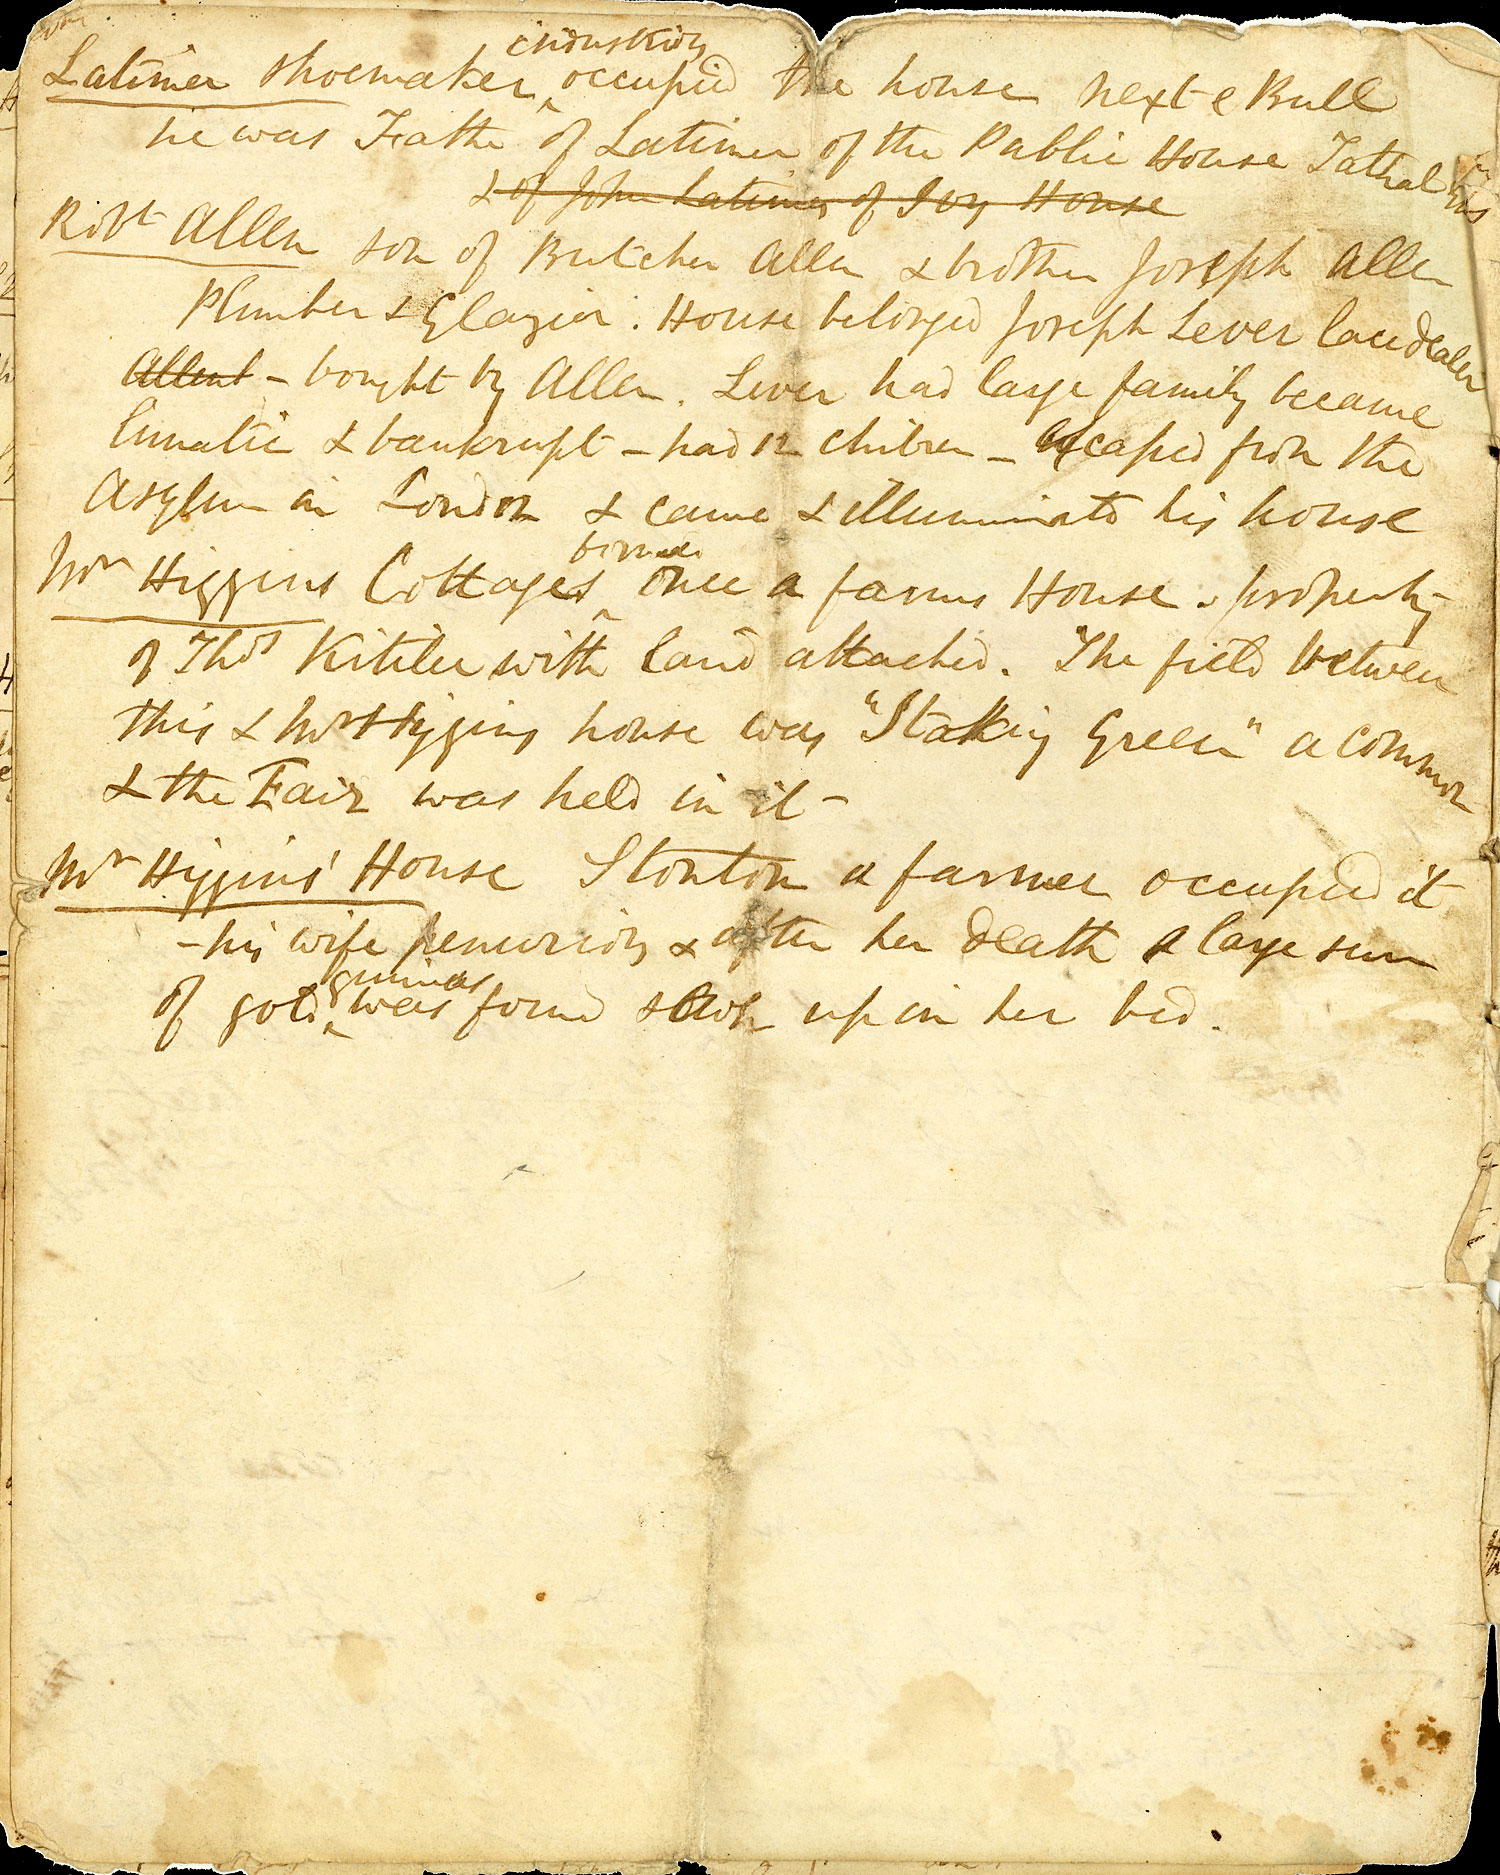 industrious
Latimer shoemaker occupied the house next e Bull
he was Father of Latimer of the Public House Tathal End
& of John Latimer of Ivy House
Robt Allen son of Butcher Allen & brother Joseph Allen
Plumber & Glazier. House belonged Joseph Lever lace dealer
- bought by Allen. Lever had large family became
lunatic & bankrupt - had 12 children - escaped from the
Asylum in London & came & illuminated his house
former
Mr Higgins Cottages once a farms House. property
of Thos Kitelee with land attached. The field between
this & Mr Higgins house was "Stalking Green" a common
& the Fair was held in it -
Mr Higgins' House Stonton a farmer occupied it
- his wife penurious & after her death a large sum
guineas
of gold was found sewn up in her bed.